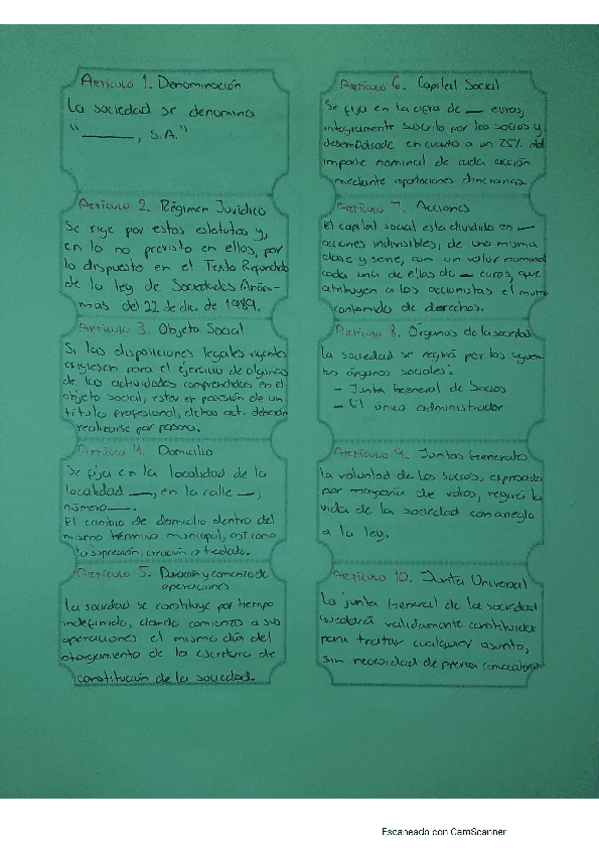 Artículo 1. Denominación
La sociedad se denomina
"______, S.A."
Artículo 2. Régimen Jurídico
Se rige por estos estatutos y,
en lo no previsto en ellos, por
lo dispuesto en el Texto Refundido
de la ley de Sociedades Anóni-
mas del 22 de dic. de 1989.
Artículo 3. Objeto Social
Si las disposiciones legales vigentes
exigiesen para el ejercicio de algunas
de las actividades comprendidas en el
objeto social, estar en posesión de un
título profesional, dichas act. deberán
realizarse por
Artículo 4. Domicilio
Se fija en la localidad de la
localidad ___, en la calle ___,
número ___.
El cambio de domicilio dentro del
mismo término municipal, así como
la supresión, creación o traslado.
Artículo 5. Duración y comienzo de
operaciones
La sociedad se constituye por tiempo
indefinido, dando comienzo a sus
operaciones el mismo día del
otorgamiento de la escritura de
constitución de la sociedad.
Artículo 6. Capital Social
Se fija en la cifra de __ euros,
íntegramente suscrito por los socios y
desembolsado en cuanto a un 25% del
importe nominal de cada acción
mediante aportaciones dinerarias.
Artículo 7. Acciones
El capital social esta dividido en __
acciones indivisibles, de una misma
clase y serie, con un valor nominal
cada una de ellas de __ euros, que
atribuyen a los accionistas el mismo
contenido de derechos.
Artículo 8. Órganos de la sociedad
La sociedad se regirá por los siguien-
tes órganos sociales:
- Junta General de Socios
- El único administrador
Artículo 9. Juntas Generales
La voluntad de los socios, expresada
por mayoría de votos, regirá la
vida de la sociedad con arreglo
a la ley.
Artículo 10. Junta Universal
La junta General de la sociedad
quedará validamente constituida
para tratar cualquier asunto,
sin necesidad de previa convocatoria
Escaneado con CamScanner